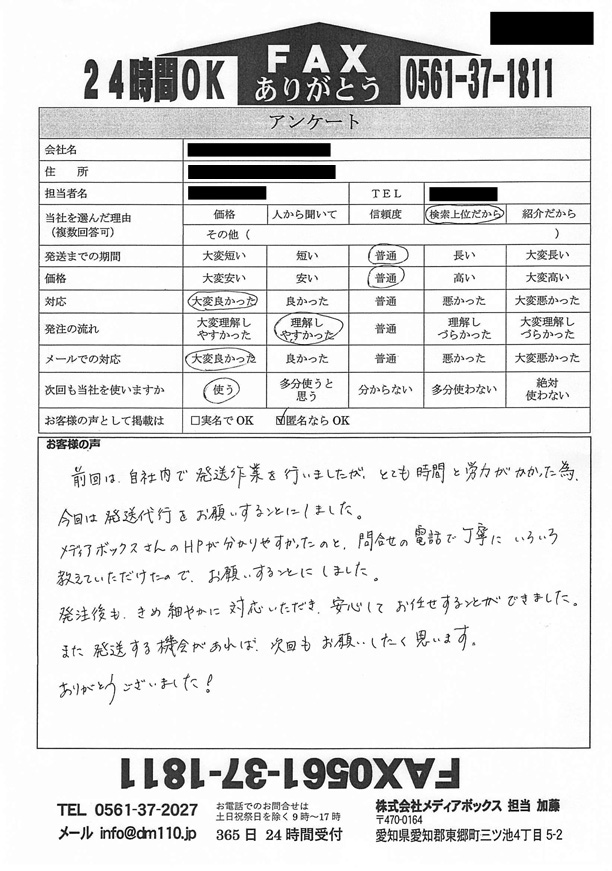 FAX
ありがとう
24時間OK
0561-37-1811
アンケート
会社名
住 所
担当者名 TEL
当社を選んだ理由（複数回答可） 価格 人から聞いて 信頼度 検索上位だから 紹介だから
その他（ ）
発送までの期間 大変短い 短い 普通 長い 大変長い
価格 大変安い 安い 普通 高い 大変高い
対応 大変良かった 良かった 普通 悪かった 大変悪かった
発注の流れ 大変理解しやすかった 理解しやすかった 普通 理解しづらかった 大変理解しづらかった
メールでの対応 大変良かった 良かった 普通 悪かった 大変悪かった
次回も当社を使いますか 使う 多分使うと思う 分からない 多分使わない 絶対使わない
お客様の声として掲載は □実名でOK ☑匿名ならOK
お客様の声
前回は、自社内で発送作業を行いましたが、とても時間と労力がかかった為、
今回は発送代行をお願いすることにしました。
メディアボックスさんのHPが分かりやすかったのと、問合せの電話で丁寧にいろいろ
教えていただけたので、お願いすることにしました。
発注後も、きめ細やかに対応いただき、安心してお任せすることができました。
また発送する機会があれば、次回もお願いしたく思います。
ありがとうございました！
FAX0561-37-1811
TEL 0561-37-2027
メール info@dm110.jp
お電話でのお問合せは
土日祝祭日を除く9時～17時
365日 24時間受付
株式会社メディアボックス 担当 加藤
〒470-0164
愛知県愛知郡東郷町三ツ池4丁目5-2